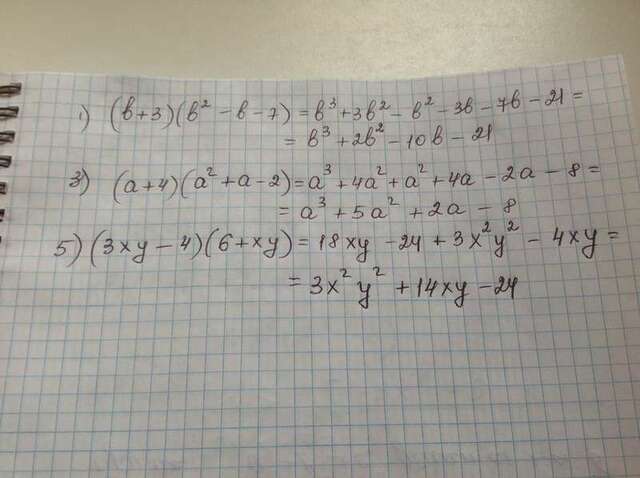 1) (b+3)(b² - b - 7) = b³ + 3b² - b² - 3b - 7b - 21 =
= b³ + 2b² - 10b - 21
3) (a+4)(a² + a - 2) = a³ + 4a² + a² + 4a - 2a - 8 =
= a³ + 5a² + 2a - 8
5) (3xy - 4)(6 + xy) = 18xy - 24 + 3x²y² - 4xy =
= 3x²y² + 14xy - 24